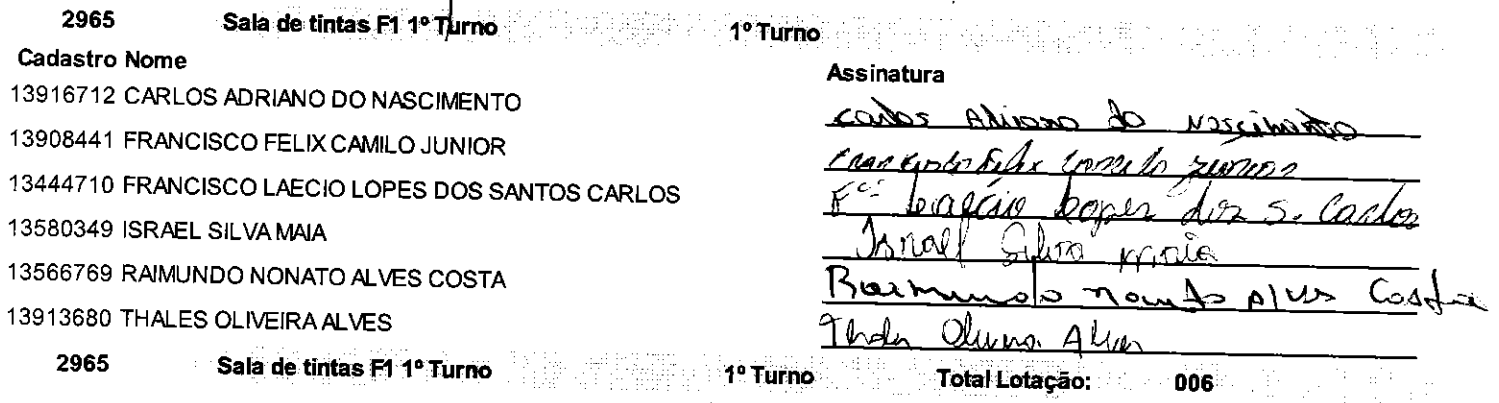 2965 Sala de tintas F1 1º Turno 1º Turno
Cadastro Nome Assinatura
13916712 CARLOS ADRIANO DO NASCIMENTO Carlos Adriano do Nascimento
13908441 FRANCISCO FELIX CAMILO JUNIOR Francisco Felix Camilo Junior
13444710 FRANCISCO LAECIO LOPES DOS SANTOS CARLOS Fcº Laécio Lopes dos S. Carlos
13580349 ISRAEL SILVA MAIA Israel Silva maia
13566769 RAIMUNDO NONATO ALVES COSTA Raimundo nonato Alves Costa
13913680 THALES OLIVEIRA ALVES Thales Oliveira Alves
2965 Sala de tintas F1 1º Turno 1º Turno Total Lotação: 006